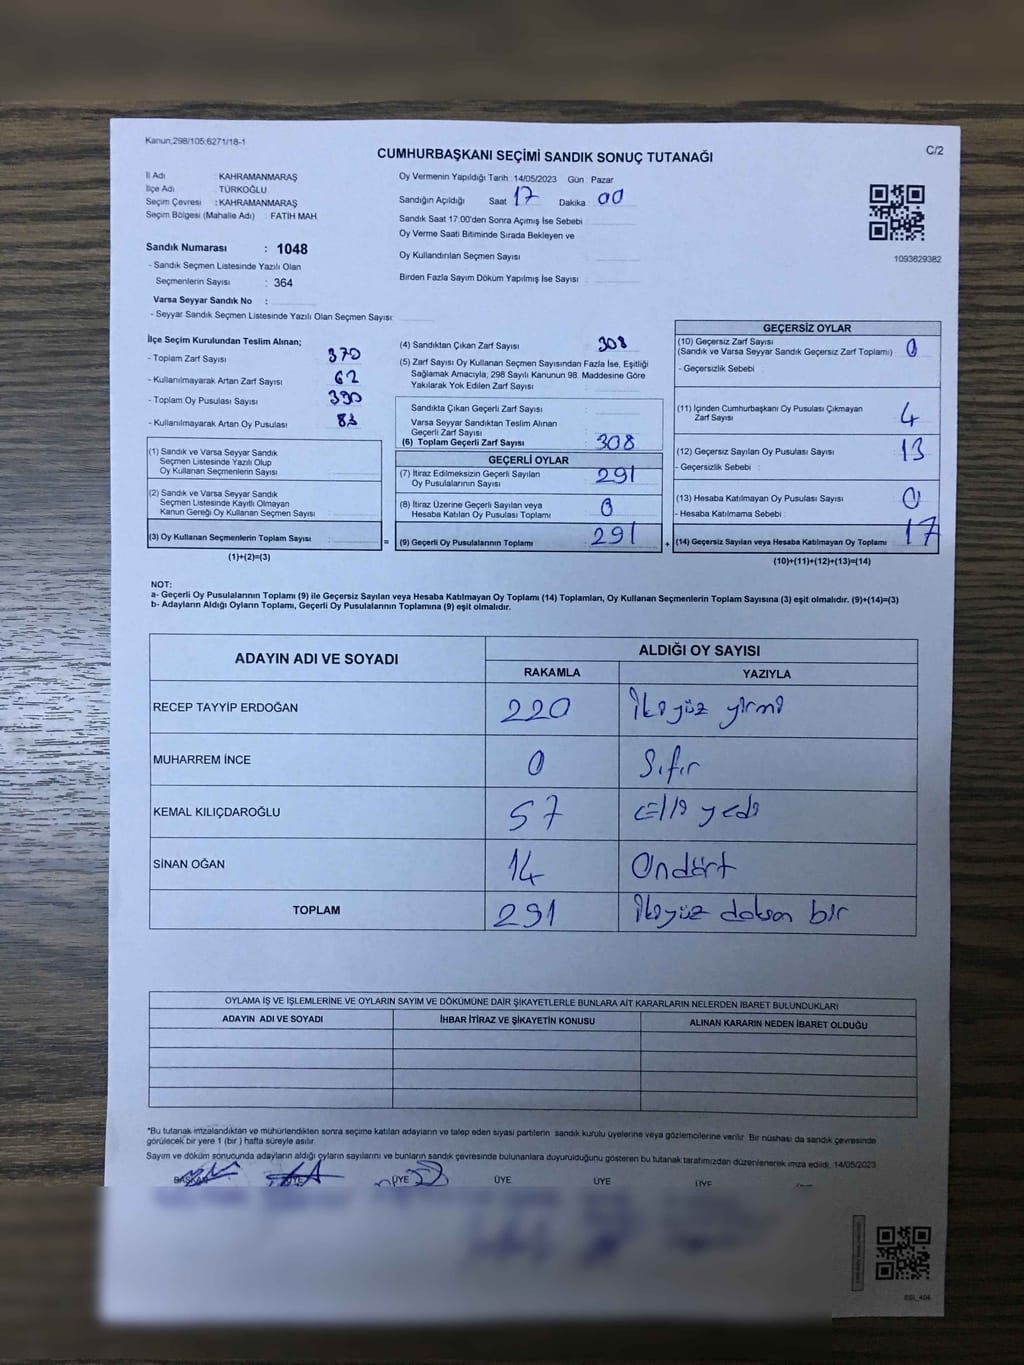 Kanun;298/105;6271/18-1
C/2
CUMHURBAŞKANI SEÇİMİ SANDIK SONUÇ TUTANAĞI
İl Adı : KAHRAMANMARAŞ
İlçe Adı : TÜRKOĞLU
Seçim Çevresi : KAHRAMANMARAŞ
Seçim Bölgesi (Mahalle Adı) : FATİH MAH.
Sandık Numarası : 1048
- Sandık Seçmen Listesinde Yazılı Olan
Seçmenlerin Sayısı : 364
Varsa Seyyar Sandık No :
- Seyyar Sandık Seçmen Listesinde Yazılı Olan Seçmen Sayısı:
Oy Vermenin Yapıldığı Tarih : 14/05/2023 Gün : Pazar
Sandığın Açıldığı Saat 17 Dakika 00
Sandık Saat 17:00'den Sonra Açımış İse Sebebi :
Oy Verme Saati Bitiminde Sırada Bekleyen ve
Oy Kullandırılan Seçmen Sayısı :
Birden Fazla Sayım Döküm Yapılmış İse Sayısı :
1093829382
İlçe Seçim Kurulundan Teslim Alınan;
- Toplam Zarf Sayısı 370
- Kullanılmayarak Artan Zarf Sayısı 62
- Toplam Oy Pusulası Sayısı 390
- Kullanılmayarak Artan Oy Pusulası
(1) Sandık ve Varsa Seyyar Sandık
Seçmen Listesinde Yazılı Olup
Oy Kullanan Seçmenlerin Sayısı :
(2) Sandık ve Varsa Seyyar Sandık
Seçmen Listesinde Kayıtlı Olmayan
Kanun Gereği Oy Kullanan Seçmen Sayısı :
(3) Oy Kullanan Seçmenlerin Toplam Sayısı :
(1)+(2)=(3)
=
(4) Sandıktan Çıkan Zarf Sayısı : 308
(5) Zarf Sayısı Oy Kullanan Seçmen Sayısından Fazla İse, Eşitliği
Sağlamak Amacıyla, 298 Sayılı Kanunun 98. Maddesine Göre
Yakılarak Yok Edilen Zarf Sayısı :
Sandıkta Çıkan Geçerli Zarf Sayısı :
Varsa Seyyar Sandıktan Teslim Alınan
Geçerli Zarf Sayısı :
(6) Toplam Geçerli Zarf Sayısı : 308
GEÇERLİ OYLAR
(7) İtiraz Edilmeksizin Geçerli Sayılan
Oy Pusulalarının Sayısı : 291
(8) İtiraz Üzerine Geçerli Sayılan veya
Hesaba Katılan Oy Pusulası Toplamı : 0
(9) Geçerli Oy Pusulalarının Toplamı : 291
+
GEÇERSİZ OYLAR
(10) Geçersiz Zarf Sayısı : 0
(Sandık ve Varsa Seyyar Sandık Geçersiz Zarf Toplamı)
- Geçersizlik Sebebi :
(11) İçinden Cumhurbaşkanı Oy Pusulası Çıkmayan
Zarf Sayısı : 4
(12) Geçersiz Sayılan Oy Pusulası Sayısı : 13
- Geçersizlik Sebebi :
(13) Hesaba Katılmayan Oy Pusulası Sayısı : 0
- Hesaba Katılmama Sebebi :
(14) Geçersiz Sayılan veya Hesaba Katılmayan Oy Toplamı : 17
(10)+(11)+(12)+(13)=(14)
NOT:
a- Geçerli Oy Pusulalarının Toplamı (9) ile Geçersiz Sayılan veya Hesaba Katılmayan Oy Toplamı (14) Toplamları, Oy Kullanan Seçmenlerin Toplam Sayısına (3) eşit olmalıdır. (9)+(14)=(3)
b- Adayların Aldığı Oyların Toplamı, Geçerli Oy Pusulalarının Toplamına (9) eşit olmalıdır.
ADAYIN ADI VE SOYADI
ALDIĞI OY SAYISI
RAKAMLA YAZIYLA
RECEP TAYYİP ERDOĞAN 220 İkiyüz yirmi
MUHARREM İNCE 0 Sıfır
KEMAL KILIÇDAROĞLU 57 Elli yedi
SİNAN OĞAN 14 Ondört
TOPLAM 291 İkiyüz doksan bir
OYLAMA İŞ VE İŞLEMLERİNE VE OYLARIN SAYIM VE DÖKÜMÜNE DAİR ŞİKAYETLERLE BUNLARA AİT KARARLARIN NELERDEN İBARET BULUNDUKLARI
ADAYIN ADI VE SOYADI İHBAR İTİRAZ VE ŞİKAYETİN KONUSU ALINAN KARARIN NEDEN İBARET OLDUĞU
*Bu tutanak imzalandıktan ve mühürlendikten sonra seçime katılan adayların ve talep eden siyasi partilerin sandık kurulu üyelerine veya gözlemcilerine verilir. Bir nüshası da sandık çevresinde
görülecek bir yere 1 (bir) hafta süreyle asılır.
Sayım ve döküm sonucunda adayların aldığı oyların sayılarını ve bunların sandık çevresinde bulunanlara duyurulduğunu gösteren bu tutanak tarafımızdan düzenlenerek imza edildi. 14/05/2023
BAŞKAN ÜYE ÜYE ÜYE ÜYE ÜYE